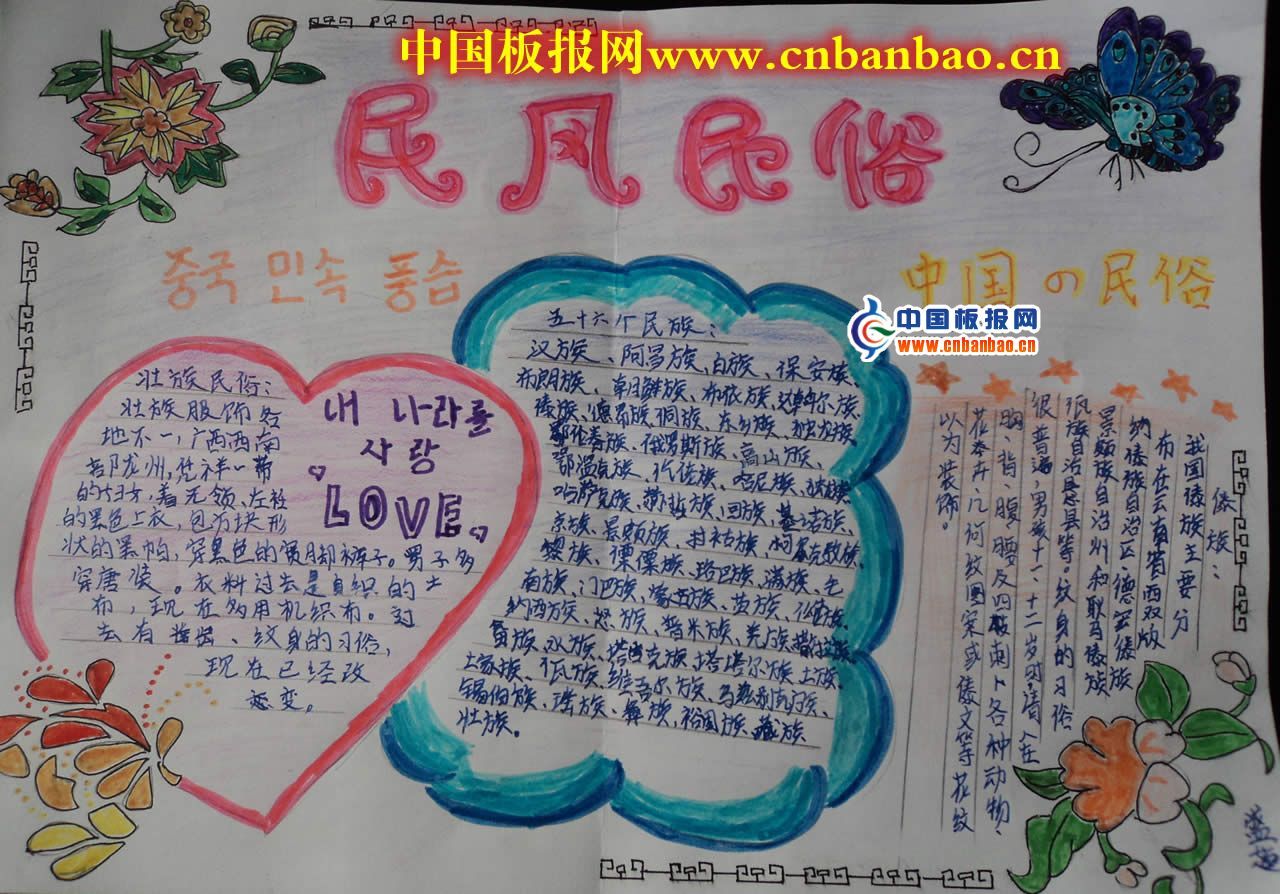 中国板报网www.cnbanbao.cn
民风民俗
중국 민속 풍습
中国の民俗
中国板报网
www.cnbanbao.cn
壮族民俗：
壮族服饰各
地不一，广西西南
部龙州，凭祥一带
的妇女，着无领、左衽
的黑色上衣，包方块形
状的黑帕，穿黑色的宽脚裤子。男子多
穿唐装。衣料过去是自织的土
布，现在多用机织布。过
去有 、纹身的习俗，
现在已经改
变。
내 나라를
사랑
LOVE
五十六个民族：
汉族、阿昌族、白族、保安族、
布朗族、朝鲜族、布依族、达斡尔族
傣族、德昂族、侗族、东乡族、独龙族、
鄂伦春族、俄罗斯族、高山族、
鄂温克族、仡佬族、哈尼族、
哈萨克族、赫哲族、回族、基诺族、
京族、景颇族、拉祜族、柯尔克孜族、
黎族、傈僳族、珞巴族、满族、毛
南族、门巴族、蒙古族、苗族、仫佬族、
纳西族、怒族、普米族、羌族、撒拉族、
畲族、水族、塔吉克族、塔塔尔族、土族、
土家族、佤族、维吾尔族、乌兹别克族、
锡伯族、瑶族、彝族、裕固族、藏族、
壮族。
傣族：
我国傣族主要分
布在云南省西双版
纳傣族自治区、德宏傣族
景颇族自治州和耿马傣族
佤族自治县县等，纹身的习俗
很普遍，男孩十一、十二岁时，请人在
胸、背、腹、腰及四肢刺上各种动物、
花卉、几何纹图案或傣文等花纹
以为装饰。